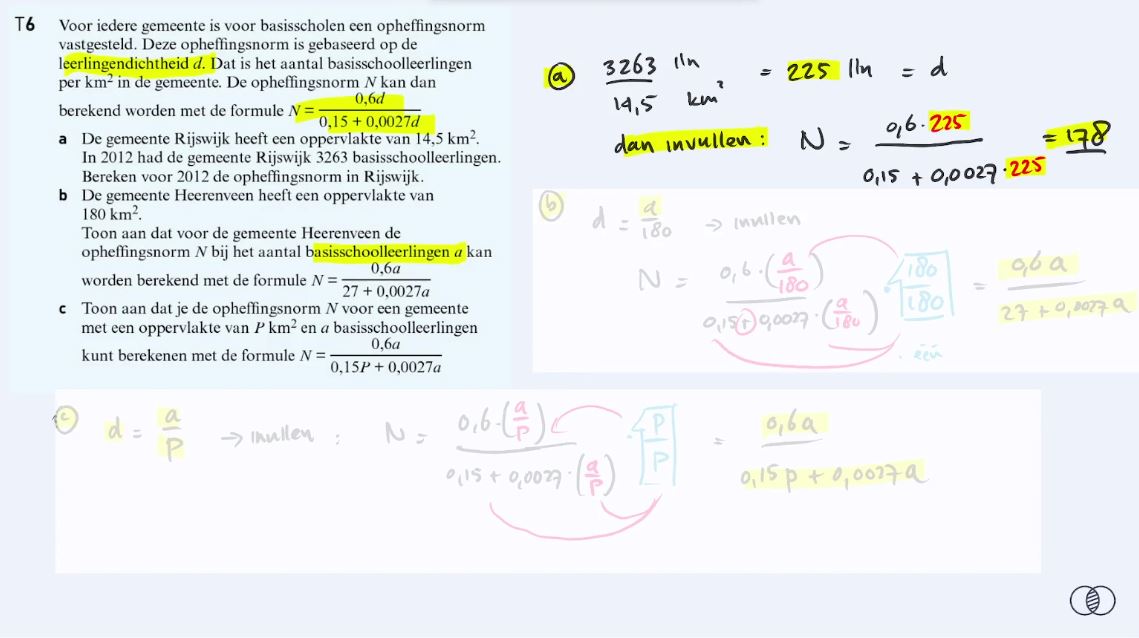 T6 Voor iedere gemeente is voor basisscholen een opheffingsnorm
vastgesteld. Deze opheffingsnorm is gebaseerd op de
leerlingendichtheid d. Dat is het aantal basisschoolleerlingen
per km² in de gemeente. De opheffingsnorm N kan dan
berekend worden met de formule N = 0,6d / (0,15 + 0,0027d)
a De gemeente Rijswijk heeft een oppervlakte van 14,5 km².
In 2012 had de gemeente Rijswijk 3263 basisschoolleerlingen.
Bereken voor 2012 de opheffingsnorm in Rijswijk.
b De gemeente Heerenveen heeft een oppervlakte van
180 km².
Toon aan dat voor de gemeente Heerenveen de
opheffingsnorm N bij het aantal basisschoolleerlingen a kan
worden berekend met de formule N = 0,6a / (27 + 0,0027a)
c Toon aan dat je de opheffingsnorm N voor een gemeente
met een oppervlakte van P km² en a basisschoolleerlingen
kunt berekenen met de formule N = 0,6a / (0,15P + 0,0027a)
a 3263 lln / 14,5 km² = 225 lln = d
dan invullen: N = 0,6 · 225 / (0,15 + 0,0027 · 225) = 178
b d = a/180 → invullen
N = 0,6 · (a/180) / (0,15 + 0,0027 · (a/180)) · 180/180 = 0,6a / (27 + 0,0027a)
één
c d = a/P → invullen : N = 0,6 · (a/P) / (0,15 + 0,0027 · (a/P)) · P/P = 0,6a / (0,15p + 0,0027a)